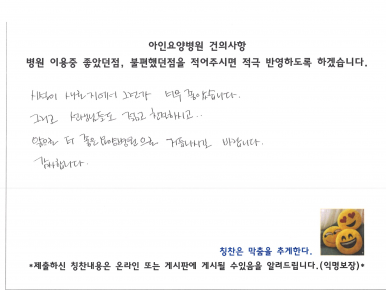 아인요양병원 건의사항
병원 이용중 좋았던점, 불편했던점을 적어주시면 적극 반영하도록 하겠습니다.
시설이 너무 좋았습니다.
그리고 친절하시고..
앞으로 더 좋은 요양병원으로 바랍니다.
감사합니다.
칭찬은 막춤을 추게한다.
*제출하신 칭찬내용은 온라인 또는 게시판에 게시될 수있음을 알려드립니다.(익명보장)*